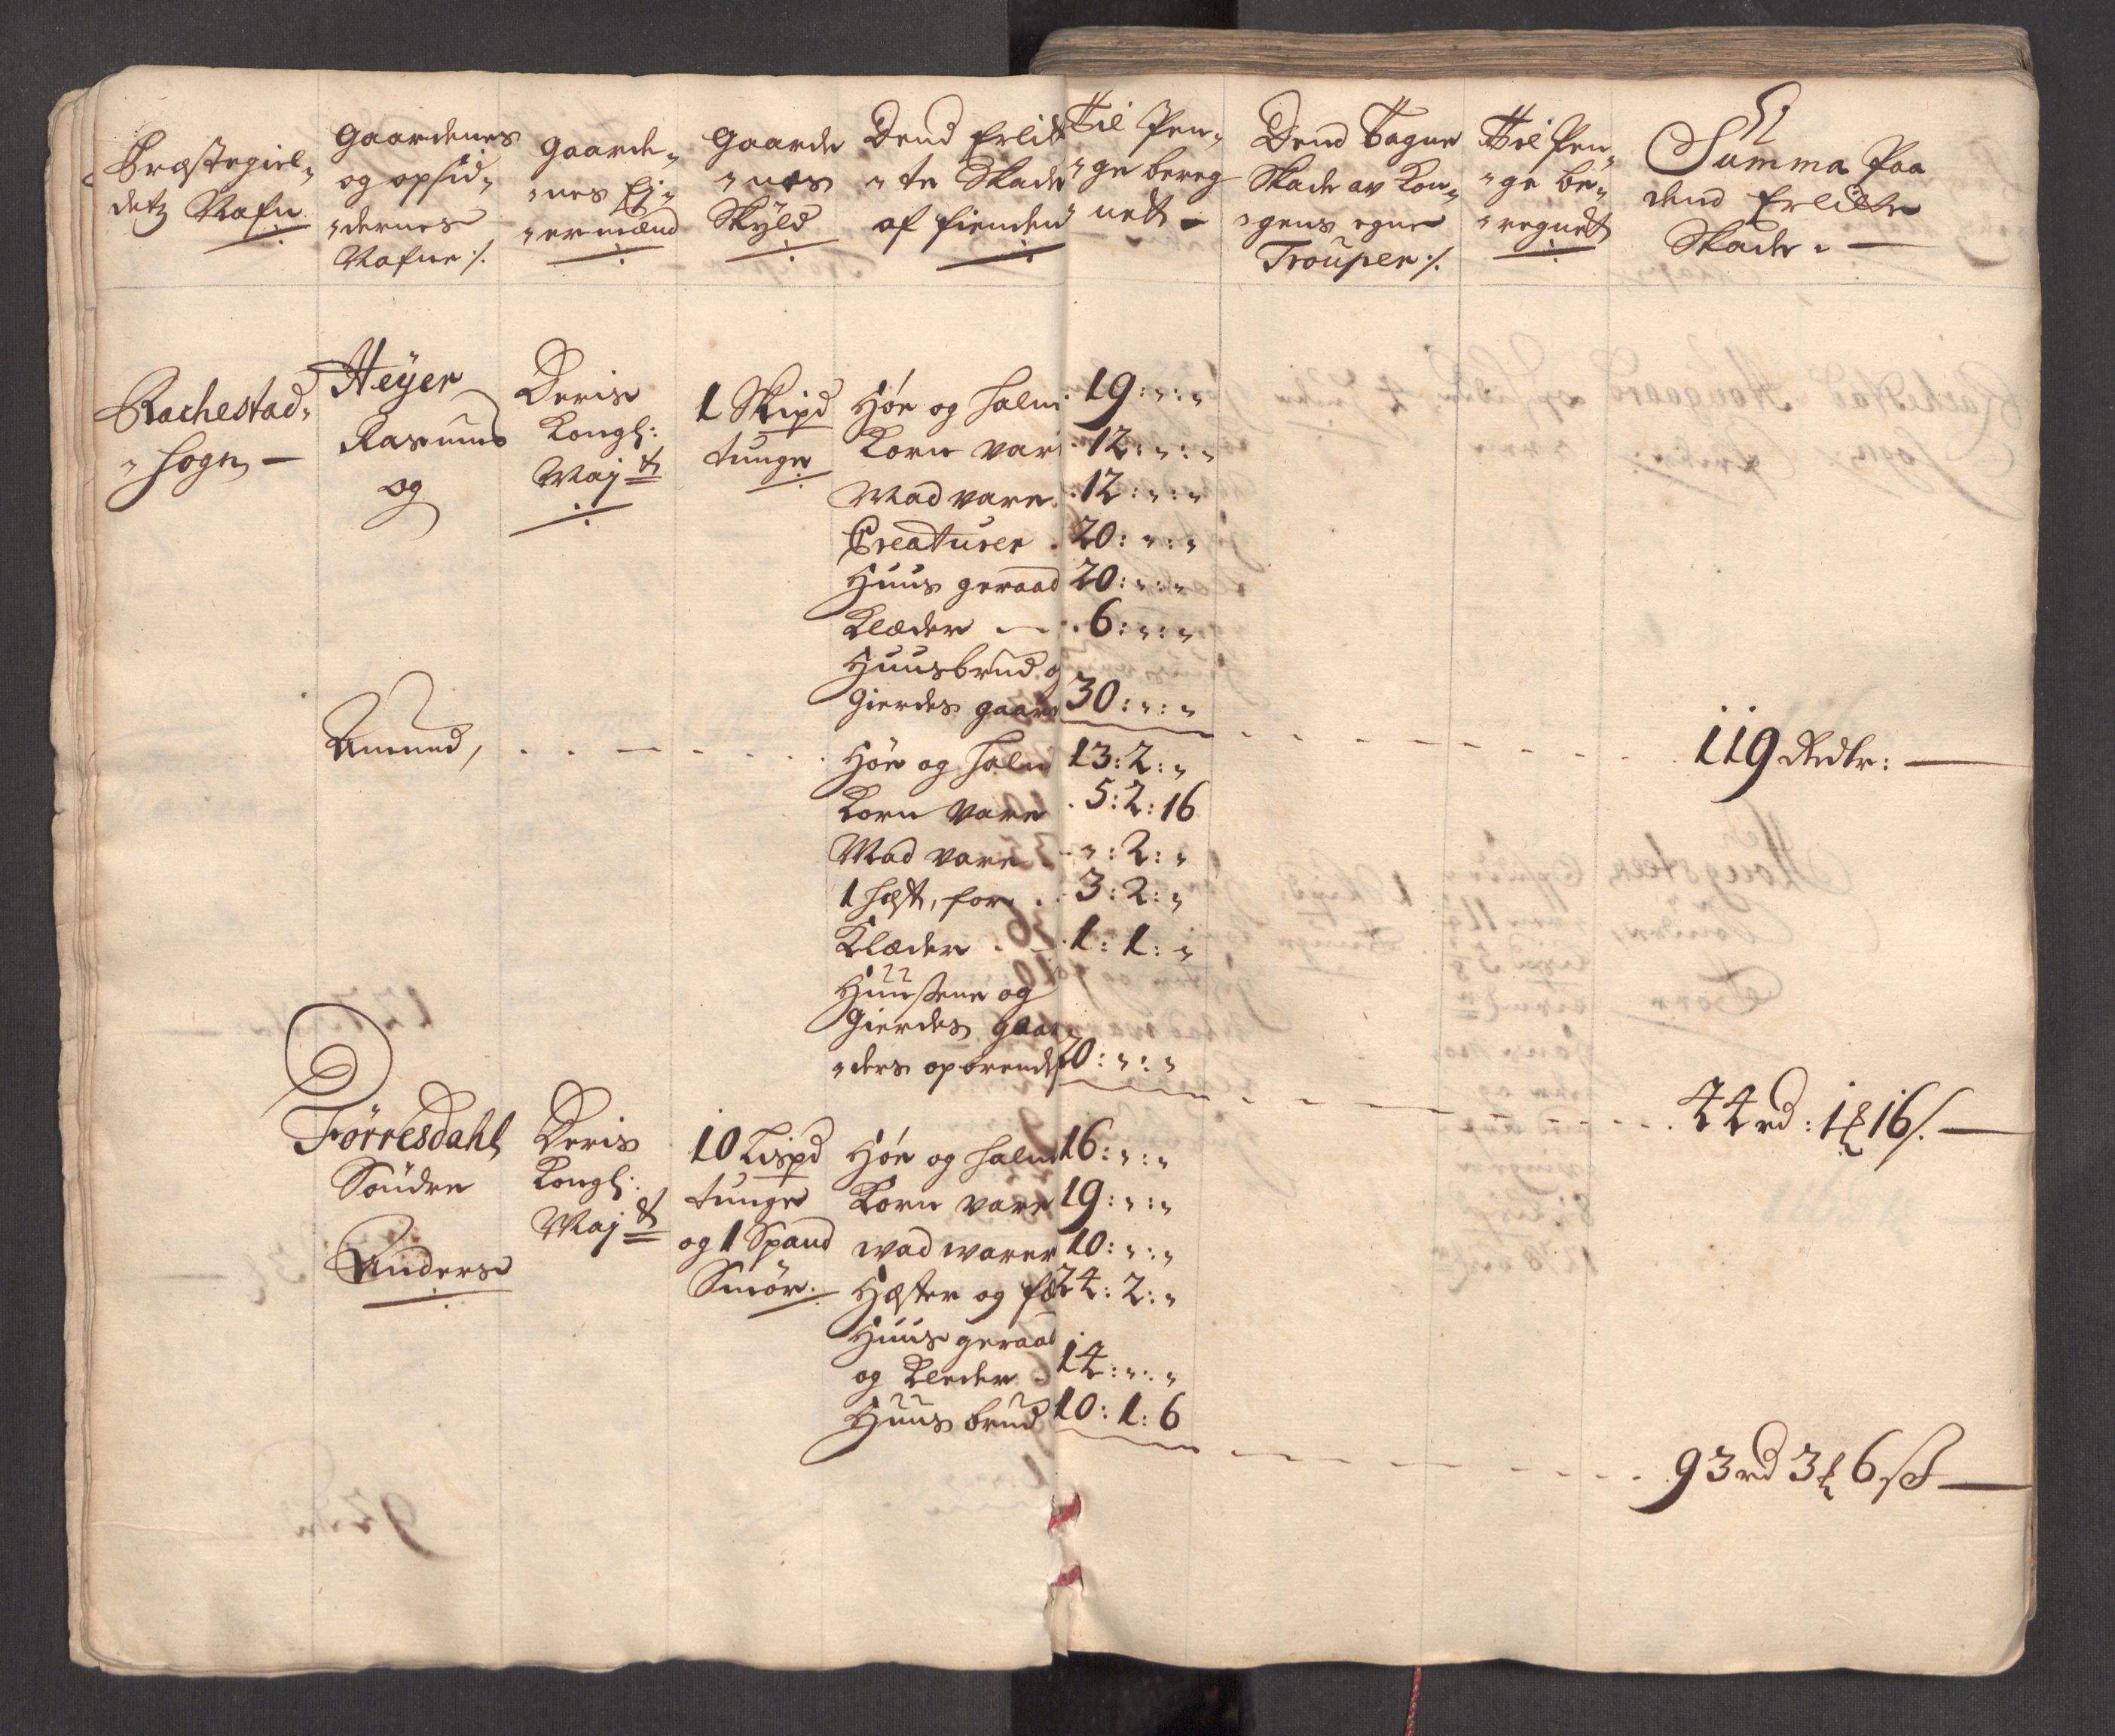 Præstegiel„
detz Nafn
Gaardenes
og opsid„
„dernes
Nafne ·/.
Gaarde„
„nes Ej„
„ermænd
Gaarde
„nes
Skÿld
Dend Erlidt
„te Skade
af fienden
Til Pen„
„ge bereg
„nett –
Dend Tagne
Skade av Kon„
„gens egne
Trouper ·/.
Til Pen„
„ge be„
„regnet
Summa Paa
dend Erlidte
Skade. –
Rachestad„
„Sogn –
Heÿer
Rasmus
og
Deris
Kongl:
Maj tt
1 Skipd
tunge
Høe og halm 19: „: „
Korn vare 12: „: „
Mad vare 12: „: „
Creaturer 20: „: „
Huus geraad 20: „: „
Klæder – 6: „: „
Huusbrud og
Gierdes gaard 30: „: „
119 Rdlr: –
Amund,
Høe og halm 13: 2: „
Korn vare 5: 2: 16
Mad vare „: 2: „
1 hæst, for 3: 2: „
Klæder 1: 1: „
Huusene og
Gierdes gaar„
„ders opbrendt 20: „: „
44 rd: 1 16 –
Förresdahl
Søndre
Anders
Deris
Kongl:
Maj tt
10 Lispd
tunge
og 1 Spand
Smör
Høe og halm 16: „: „
Korn vare 19: „: „
Mad warer 10: „: „
Hæster og fæ 24: 2: „
Huus geraad
og Kleder 14: „: „
Huus brud 10: 1: 6
93 rd 3 6 –